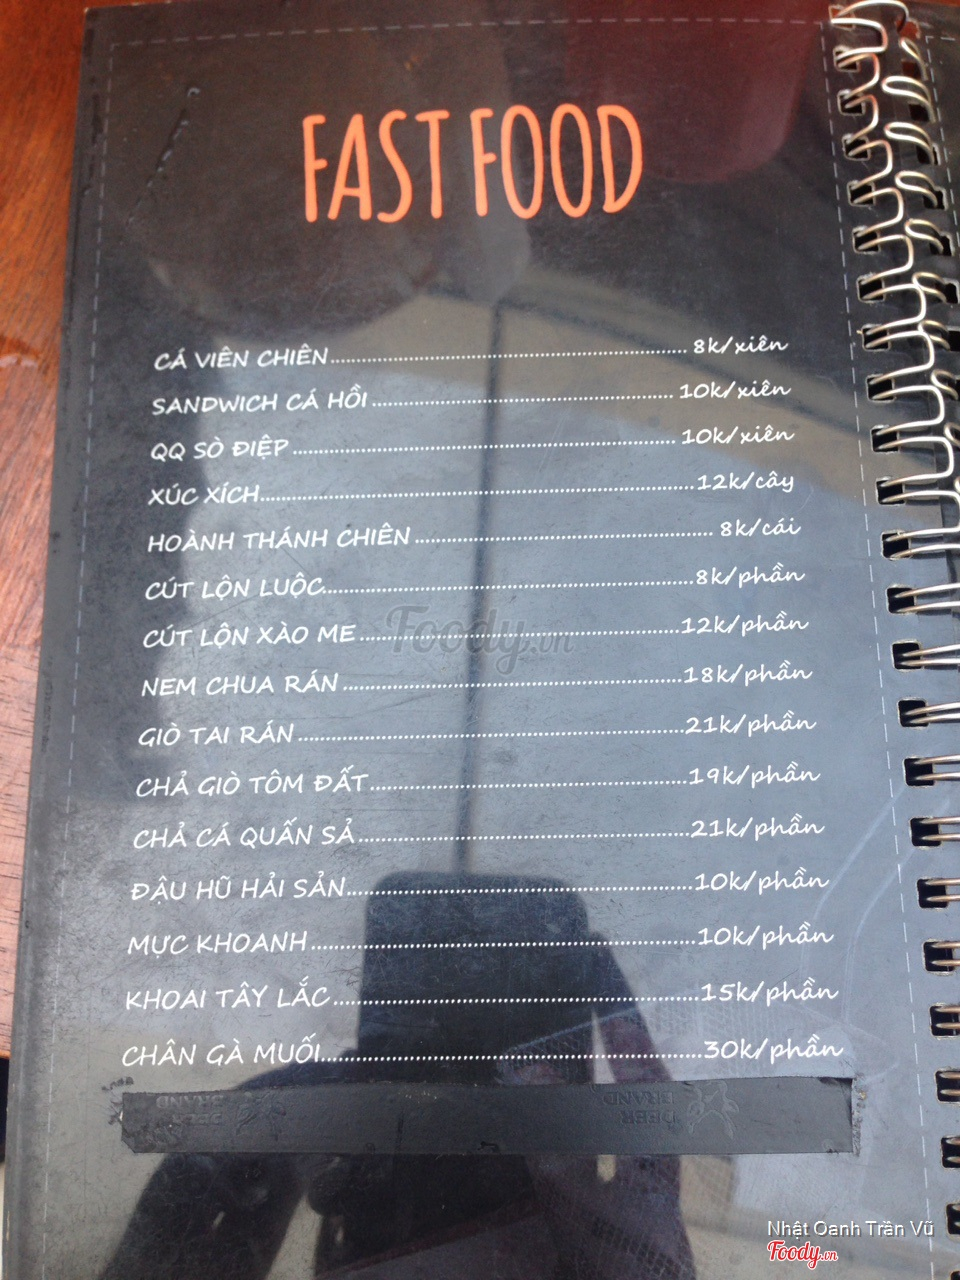 FAST FOOD
CÁ VIÊN CHIÊN........ 8k/xiên
SANDWICH CÁ HỒI........ 10k/xiên
QQ SÒ ĐIỆP........ 10k/xiên
XÚC XÍCH........ 12k/cây
HOÀNH THÁNH CHIÊN........ 8k/cái
CÚT LỘN LUỘC........ 8k/phần
CÚT LỘN XÀO ME........ 12k/phần
NEM CHUA RÁN........ 18k/phần
GIÒ TAI RÁN........ 21k/phần
CHẢ GIÒ TÔM ĐẤT........ 19k/phần
CHẢ CÁ QUẤN SẢ........ 21k/phần
ĐẬU HŨ HẢI SẢN........ 10k/phần
MỰC KHOANH........ 10k/phần
KHOAI TÂY LẮC........ 15k/phần
CHÂN GÀ MUỐI........ 30k/phần
DEER BRAND DEER BRAND
Foody.vn
Nhật Oanh Trần Vũ
Foody.vn